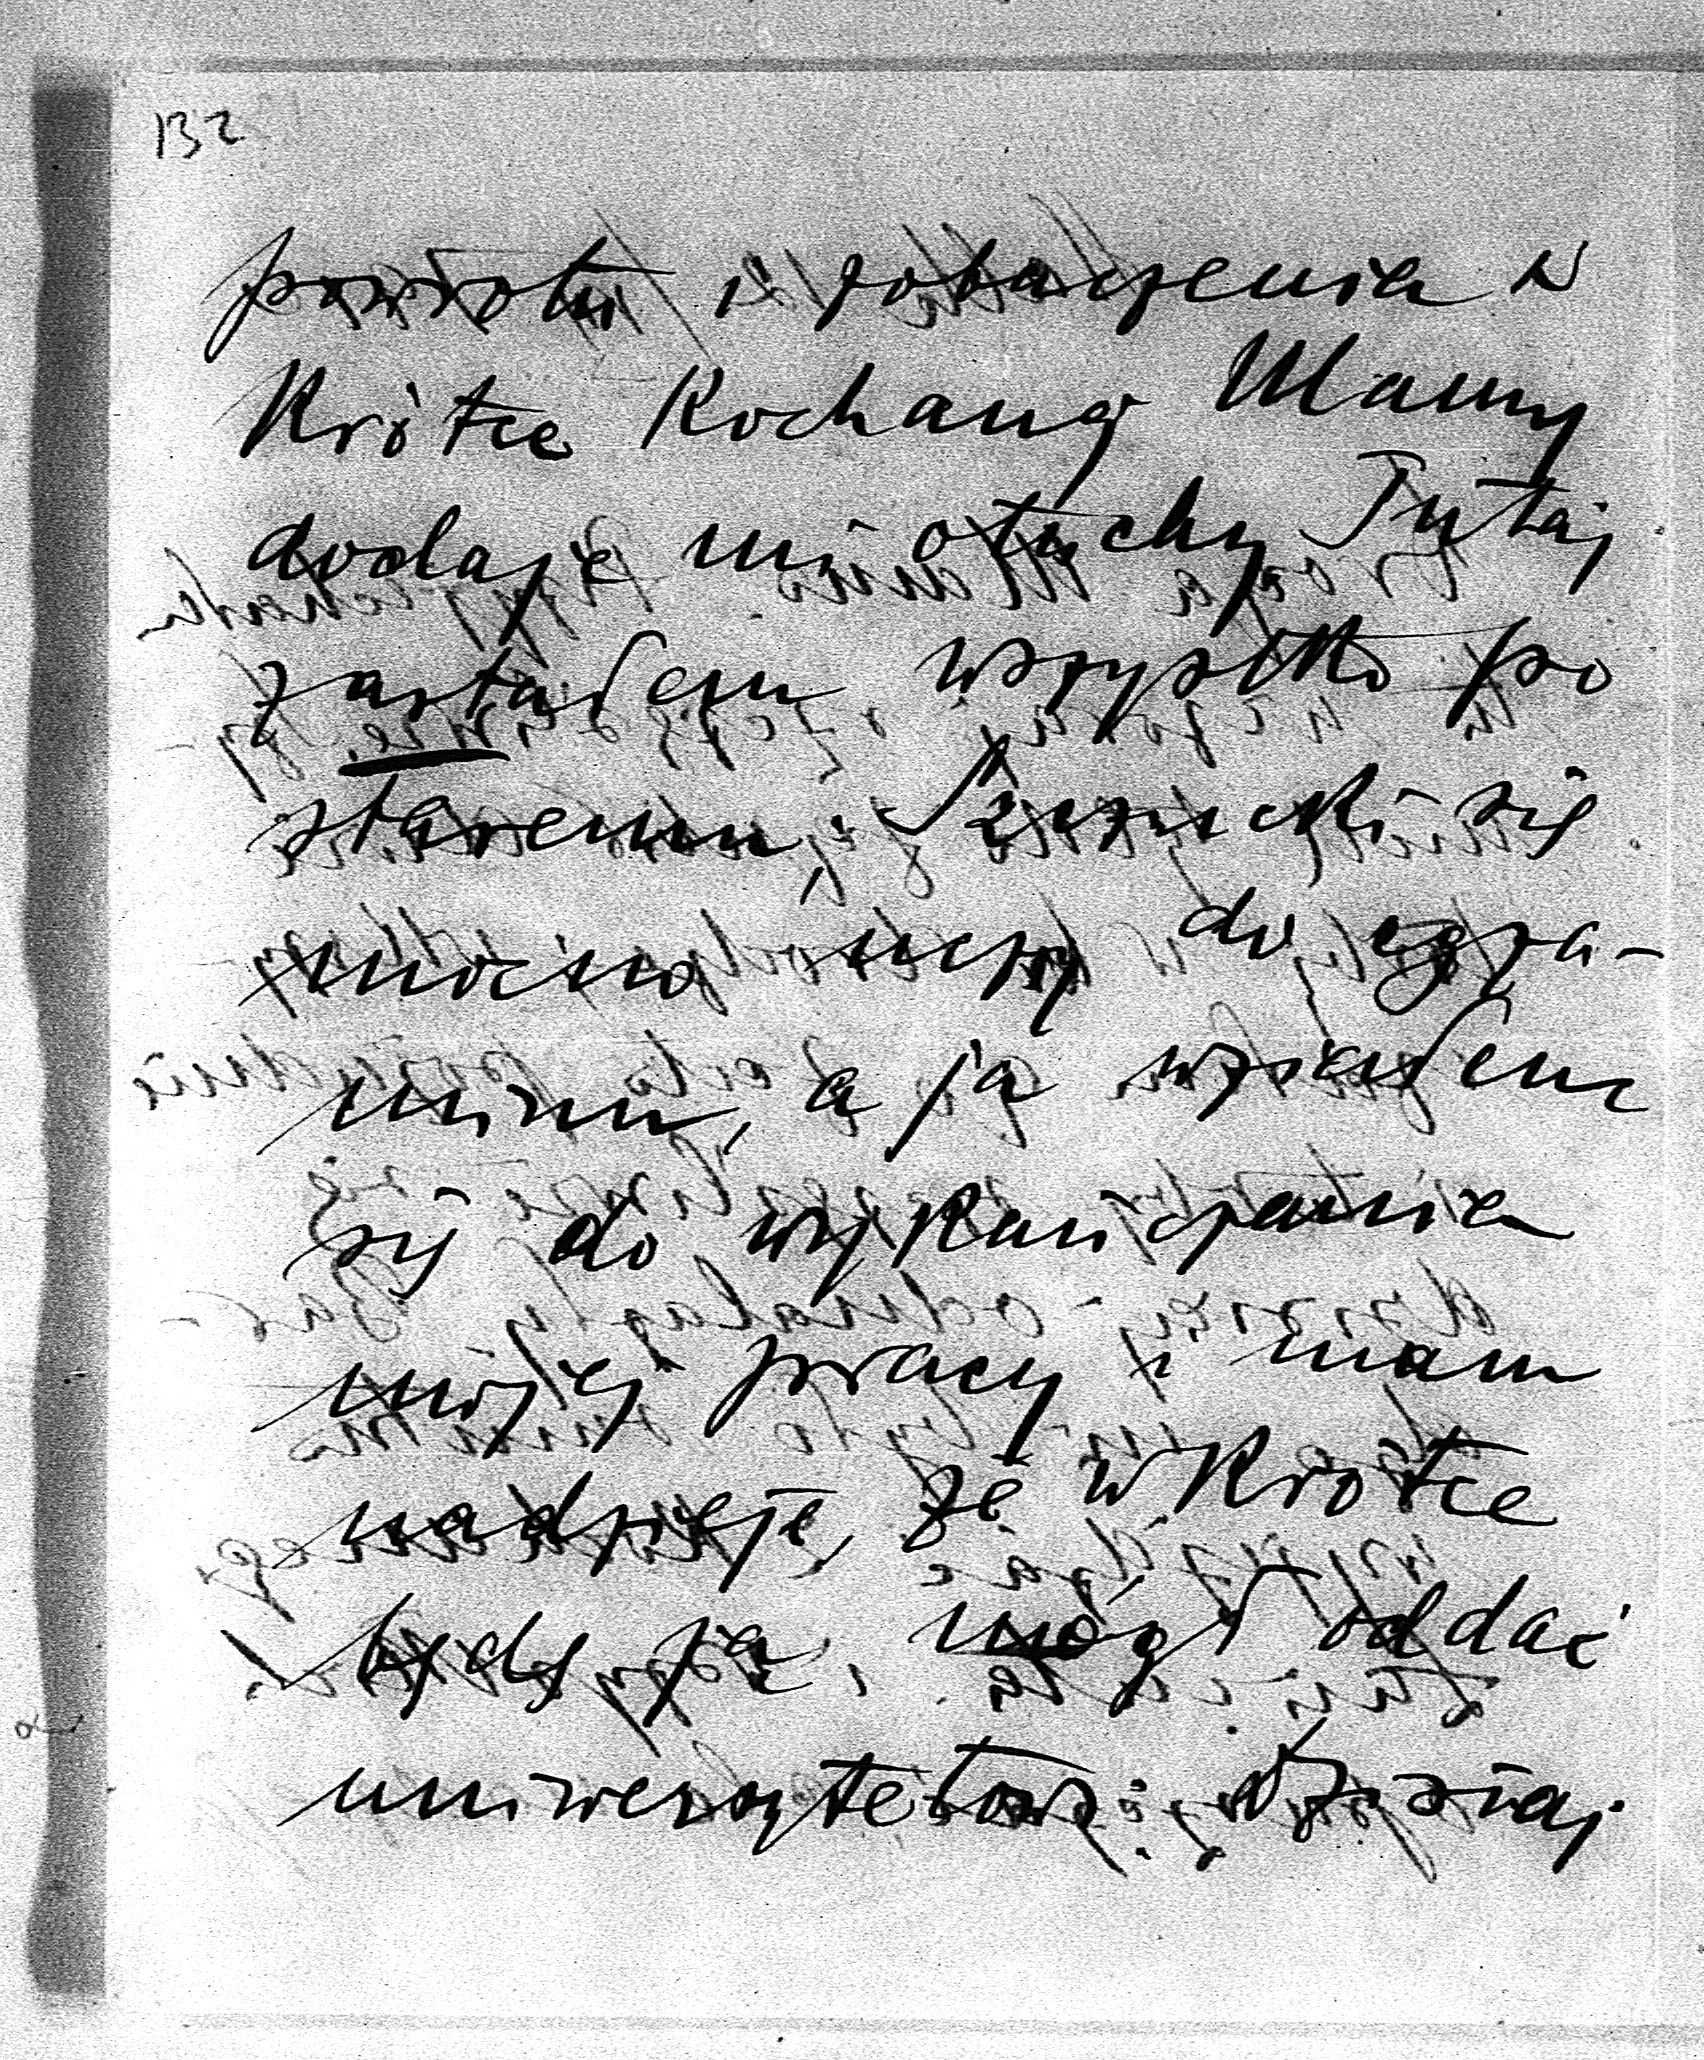 132
powrotu i zobaczenia w
Krótce Kochaną Mamy
dodaje mi otuchy Tutaj
zastałem wszystko po
staremu. się
mocno uczy do egza-
minu, a ja wziąłem
się do wykańczania
mojej pracy i mam
nadzieję, że w Krótce
będę ją mógł oddać
uniwersytetowi. Dzisiaj